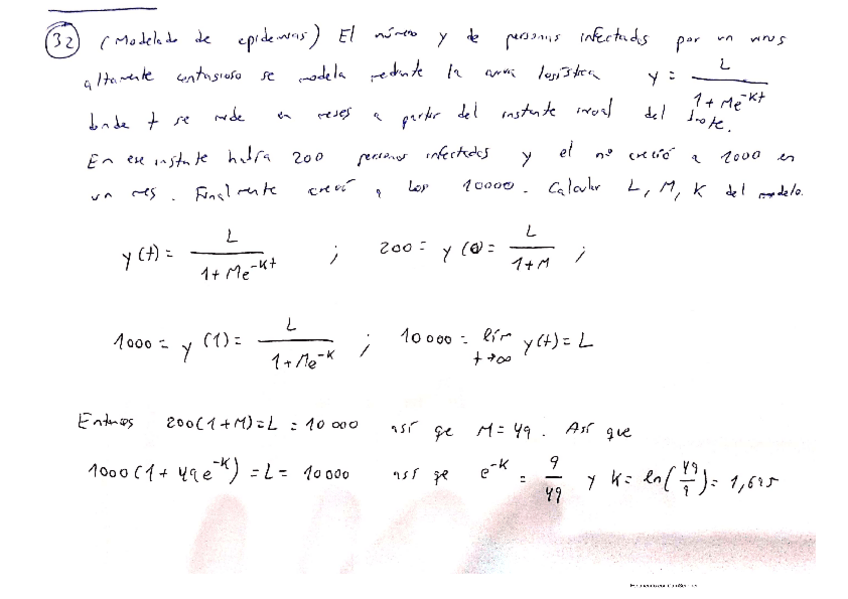 32 (Modelado de epidemias) El número y de personas infectadas por un virus
altamente contagioso se modela mediante la curva logística y = L / (1 + Me^-Kt)
donde t se mide en meses a partir del instante inicial del brote.
En ese instante había 200 personas infectadas y el nº creció a 1000 en
un mes. Finalmente creció a los 10000. Calcular L, M, K del modelo.
y(t) = L / (1 + Me^-Kt) ; 200 = y(0) = L / (1 + M) ;
1000 = y(1) = L / (1 + Me^-K) ; 10000 = lím t→∞ y(t) = L
Entonces 200(1+M) = L = 10000 así qe M = 49. Así que
1000(1 + 49e^-K) = L = 10000 así qe e^-K = 9/49 y K = ln(49/9) = 1,695